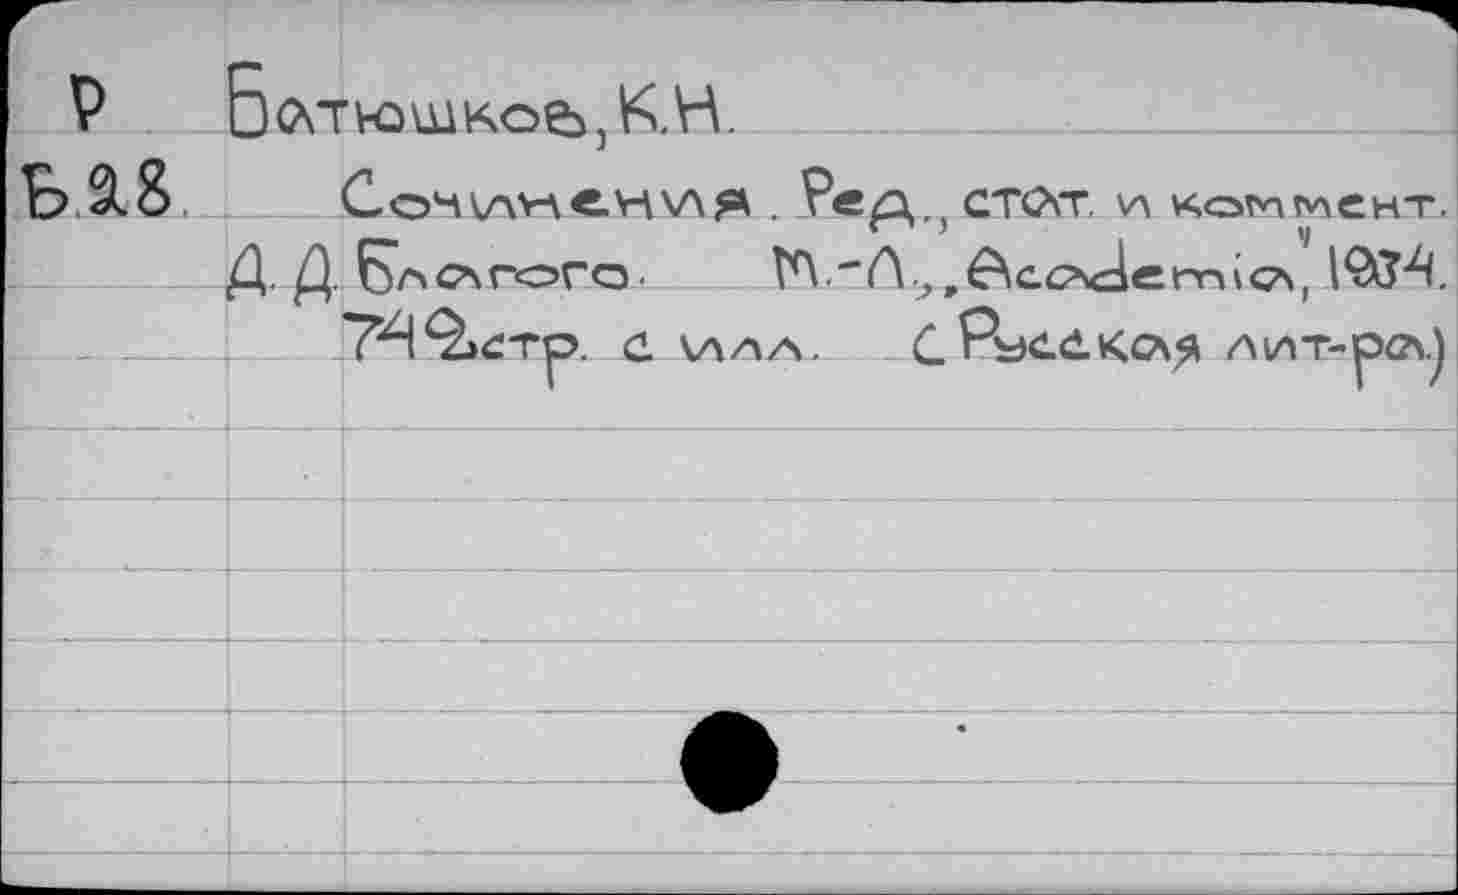 Р Батюшков, К.Н.
Б.28. Сочинения. Ред., стат. и коммент.
Д. Д. Благого. М.-Л., „Academia", 1934.
742 стр. с илл. (Русская лит-ра.)